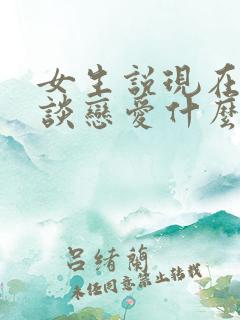 女生說現在
談戀愛什麼
呂緒蘭
未經同意禁止轉載